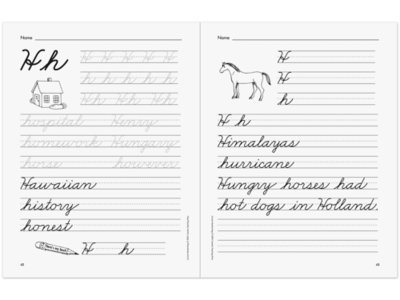 Name
H h
H H H H H
h h h h h
Hh Hh Hh
hospital Henry
homework Hungary
horse however
Hawaiian
history
honest
Here's my best!
H h
Name
H
H
h
H h
Himalayas
hurricane
Hungry horses had
hot dogs in Holland.